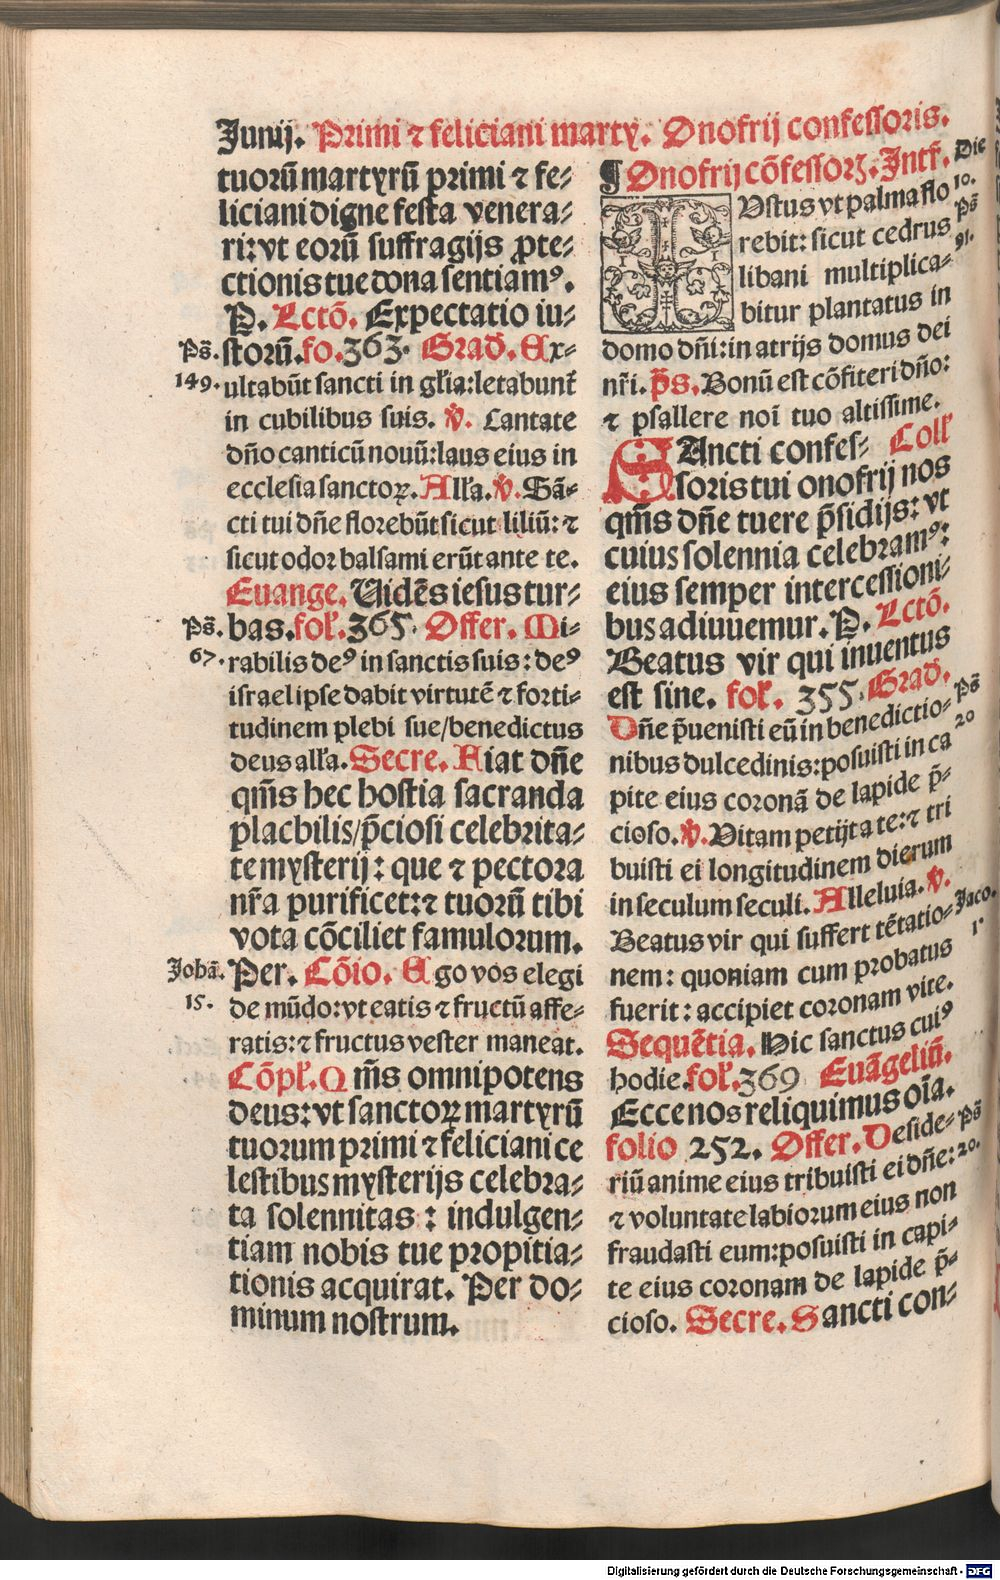 Junij. Primi ⁊ feliciani marty. Onofrij confessoris.
tuorū martyrū primi ⁊ fe⸗
liciani digne festa venera⸗
ri: vt eorū suffragijs ꝓte⸗
ctionis tue dona sentiamꝰ.
P. Lectō. Expectatio iu⸗
Ps̄. storū. fo. 363. Grad̄. Ex⸗
149. ultabūt sancti in gl̄ia: letabunt̄
in cubilibus suis. v̄. Cantate
dn̄o canticū nouū: laus eius in
ecclesia sanctoꝝ. All̄a. v̄. Sā⸗
cti tui dn̄e florebūt sicut liliū: ⁊
sicut odor balsami erūt ante te.
Euange. Vidēs iesus tur⸗
Ps̄. bas. fol̄. 365. Offer. Mi⸗
67. rabilis deꝰ in sanctis suis: deꝰ
israel ipse dabit virtutē ⁊ forti⸗
tudinem plebi sue/benedictus
deus all̄a. Secre. Fiat dn̄e
qm̄s hec hostia sacranda
placbilis/p̄ciosi celebrita⸗
te mysterij: que ⁊ pectora
nr̄a purificet: ⁊ tuorū tibi
vota cōciliet famulorum.
Johā. Per. Cōio. Ego vos elegi
15. de mūdo: vt eatis ⁊ fructū affe⸗
ratis: ⁊ fructus vester maneat.
Cōpl̄. Qm̄s omnipotens
deus: vt sanctoꝝ martyrū
tuorum primi ⁊ feliciani ce
lestibus mysterijs celebra⸗
ta solennitas : indulgen⸗
tiam nobis tue propitia⸗
tionis acquirat. Per do⸗
minum nostrum.
¶ Onofrij cōfessorꝭ. Intr̄. Die
IUstus vt palma flo 10.
rebit: sicut cedrus Ps̄
libani multiplica⸗ 91.
bitur plantatus in
domo dn̄i: in atrijs domus dei
nr̄i. p̄s. Bonū est cōfiteri dn̄o:
⁊ psallere noī tuo altissime.
SAncti confes⸗ Coll̄
soris tui onofrij nos
qm̄s dn̄e tuere p̄sidijs: vt
cuius solennia celebramꝰ:
eius semper intercessioni⸗
bus adiuuemur. P. Lectō.
Beatus vir qui inuentus
est sine. fol̄. 355. Grad̄.
Dn̄e p̄uenisti eū in benedictio⸗ Ps̄
nibus dulcedinis: posuisti in ca 20
pite eius coronā de lapide p̄⸗
cioso. v̄. Vitam petijt a te: ⁊ tri
buisti ei longitudinem dierum
in seculum seculi. Alleluia. v̄.
Beatus vir qui suffert tētatio⸗ Jaco.
nem: quoniam cum probatus 1
fuerit: accipiet coronam vite.
Sequētia. Hic sanctus cuiꝰ
hodie. fol̄. 369 Euāgeliū.
Ecce nos reliquimus oīa.
folio 252. Offer. Deside⸗ Ps̄
riū anime eius tribuisti ei dn̄e: 20.
⁊ voluntate labiorum eius non
fraudasti eum: posuisti in capi⸗
te eius coronam de lapide p̄⸗
cioso. Secre. Sancti con⸗
Digitalisierung gefördert durch die Deutsche Forschungsgemeinschaft - DFG